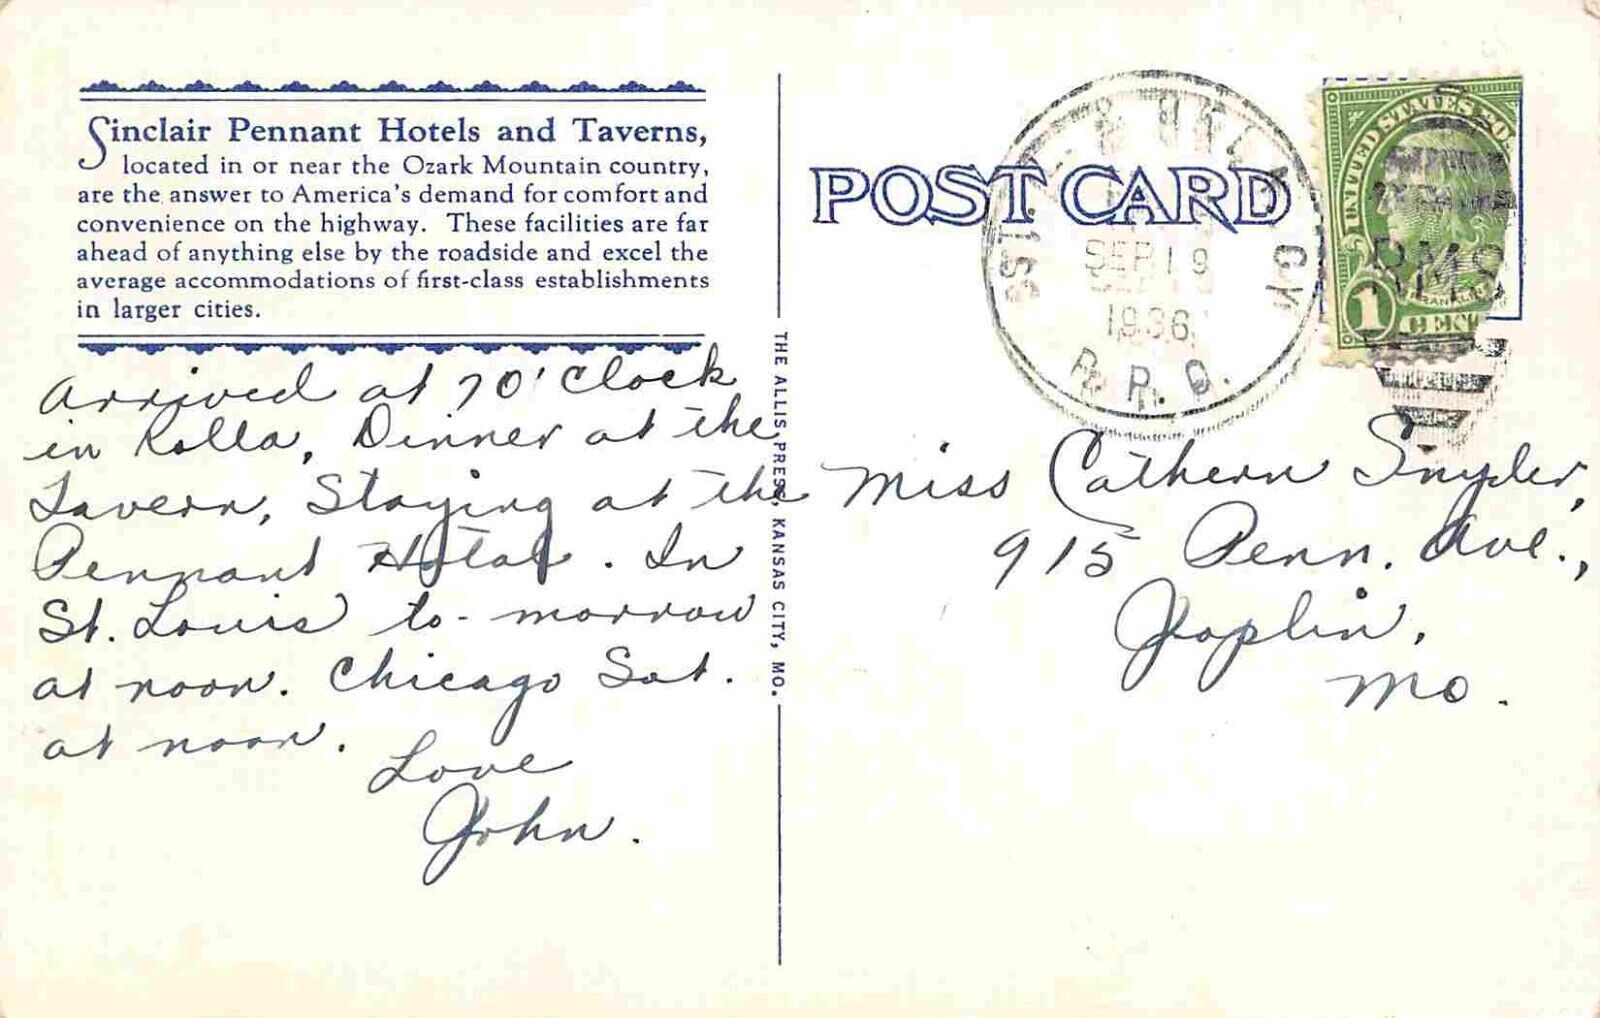 Sinclair Pennant Hotels and Taverns,
located in or near the Ozark Mountain country,
are the answer to America's demand for comfort and
convenience on the highway. These facilities are far
ahead of anything else by the roadside and excel the
average accommodations of first-class establishments
in larger cities.
Arrived at 7 O'Clock
in Rolla, Dinner at the
Tavern, Staying at the
Pennant Hotel. In
St. Louis to-morrow
at noon. Chicago Sat.
at noon.
Love
John.
THE ALLIS PRESS, KANSAS CITY, MO.
POST CARD
SEP 19
1936
R.P.O.
RMS
UNITED STATES POSTAGE
FRANKLIN
1 CENT 1
Miss Cathern Snyder,
915 Penn. Ave.,
Joplin,
Mo.